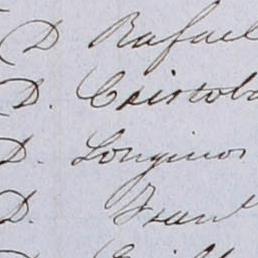 D Rafael
D. Cristob
D. Longinos
D. Juan